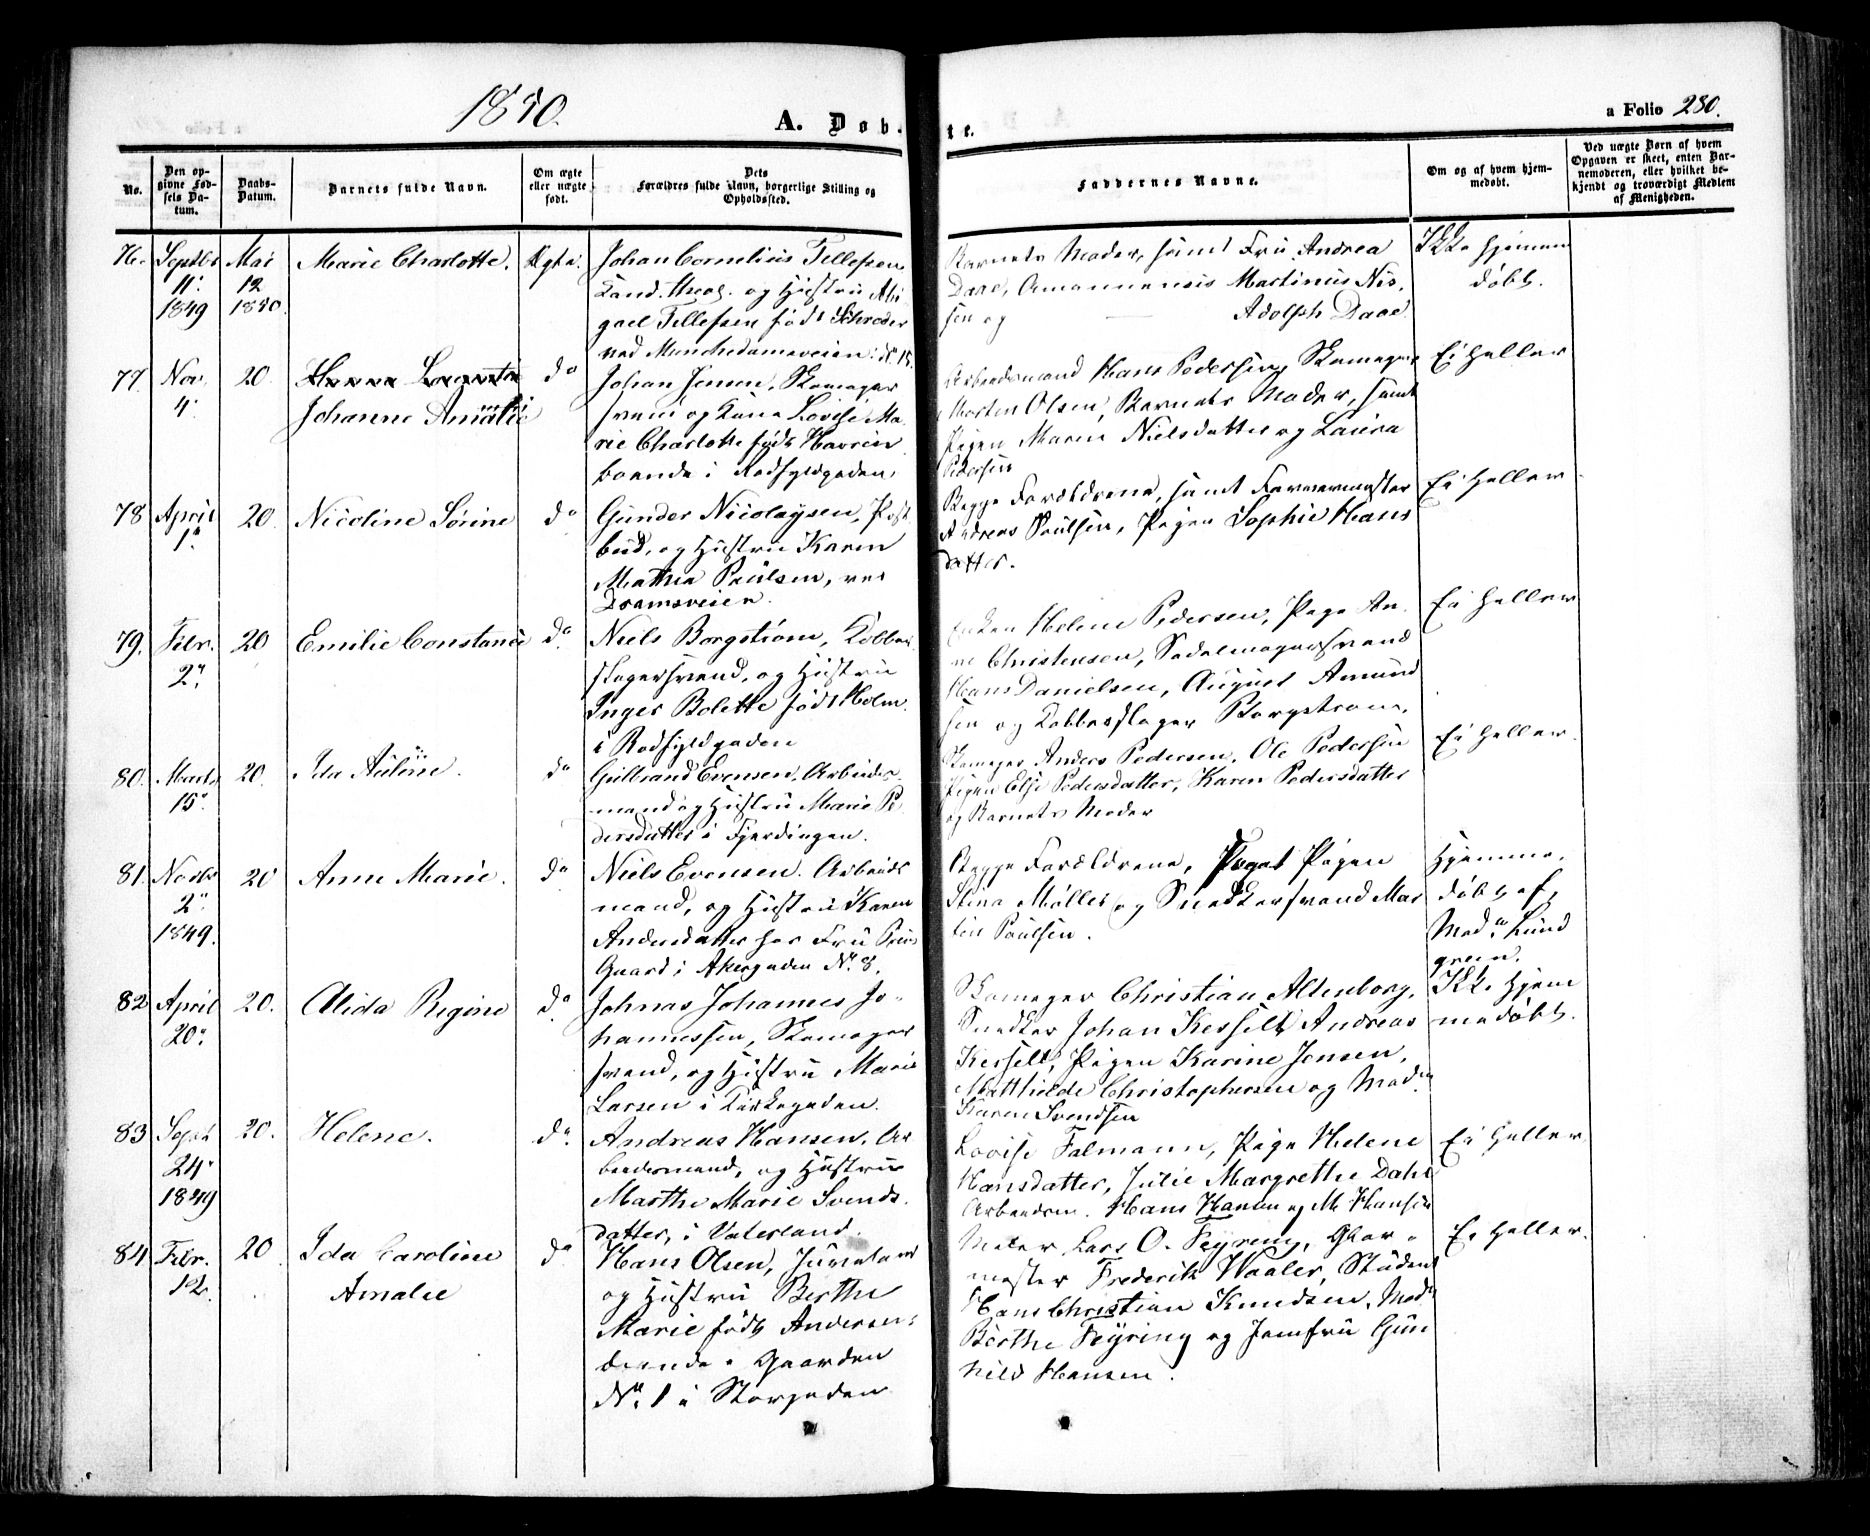 1850.
A. Døb-
te.
a Folio 280.
No.
Den op-
givne Fød-
sels Da-
tum.
Daabs-
Datum.
Barnets fulde Navn.
Om ægte
eller uægte
født.
Dets
Forældres fulde Navn, borgerlige Stilling og
Opholdssted.
Faddernes Navne.
Om og af hvem hjem-
medøbt.
Ved uægte Børn af hvem
Opgaven er skeet, enten Bar-
nemoderen, eller hvilket be-
kjendt og troværdigt Medlem
af Menigheden.
76.
Septbr
11.
1849
Mai
12
1850.
Marie Charlotte.
Ægte.
Johan Cornelius Tellefsen
Cand. theol. og Hustru Abi-
gael Tellefsen født Schrøder
ved Munkedamsveien No 15.
Barnets Moder, samt Fru Andrea
Daae, Amanuensis Martinus Nis-
sen og Adolph Daae.
Ikke hjemme
døbt.
77.
Nov.
4.
20.
Johanne Amalie
do
Johan Jensen, Skomager
svend og Kone Lovise Ma-
rie Charlotte født Havrin
boende i Rodfyldgaden.
Arbeidsmand Hans Pedersen, Skomager
Morten Olsen, Barnets Moder, samt
Pigen Maren Nielsdatter og Laura
Pedersen
Ei heller
78
April
1.
20.
Nicoline Sørine
do
Gunder Nicolaysen, Post
bud, og Hustru Karen
Mathea Paulsen, ved
Dramsveien.
Begge Forældrene, samt Farvermester
Andreas Paulsen, Pigen Sophie Hans
datter.
Ei heller
79.
Febr.
2.
20
Emilie Constance
do.
Niels Borgstrøm, Kobber
slagersvend, og Hustru
Inger Bolette født Holm
i Rodfyldgaden
Enken Helene Pedersen, Pige An-
ne Christensen, Sadelmagersvend
Hans Danielsen, August Amund
sen og Kobberslager Borgstrøm.
Ei heller
80.
Marts
15.
20.
Ida Auline.
do
Gulbrand Evensen, Arbeids-
mand og Hustru Marie Pe-
dersdatter i Fjerdingen.
Skomager Anders Pedersen, Ole Pedersen
Pigen Else Pedersdatter, Karen Pedersdatter
og Barnets Moder
Ei heller.
81.
Novbr
2.
1849.
20
Anne Marie.
do
Niels Evensen. Arbeids
mand, og Hustru Karen
Andersdatter hos Fru
Gaard i Akergaden No 8.
Begge Forældrene, Pigen
Stina Møller og Snedkersvend Mar
tin Paulsen.
Hjemme-
døbt af
Madm Lund
green.
82
April
20.
20.
Alida Regine
do.
Johnas Johannes Jo-
hannessen, Skomager
svend, og Hustru Marie
Larsen i Kirkegaden.
Skomager Christian Altenborg,
Snedker Johan Kesselt, Andreas
Kesselt, Pigen Karine Jensen,
Matthilde Christophersen og Madm
Karen Svendsen
Ikke hjem
medøbt.
83
Sept
24.
1849
20.
Helene.
do.
Andreas Hansen, Ar-
beidsmand, og Hustrue
Marthe Marie Svends
datter, i Vaterland.
Lovise Falmann, Pige Helene
Hansdatter, Julie Margrethe Dahl
Arbeidsm. Hans Hansen og M. Hansen
Ei heller
84
Febr.
12.
20
Ida Caroline
Amalie
do
Hans Olsen, Juveleer
og Hustru Berthe
Marie født Andersen,
boende i Gaarden
No. 1 i Storgaden
Maler Lars O. Feyring, Glar-
mester Frederik Waaler, Student
Hans Christian Knudsen, Madm
Berthe Feyring og Jomfru Gun
hild Hansen.
Ei heller.